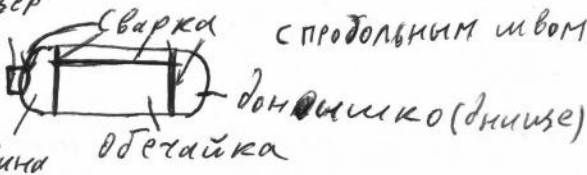 Сварка с продольным швом
донышко (днище)
Обечайка
ина